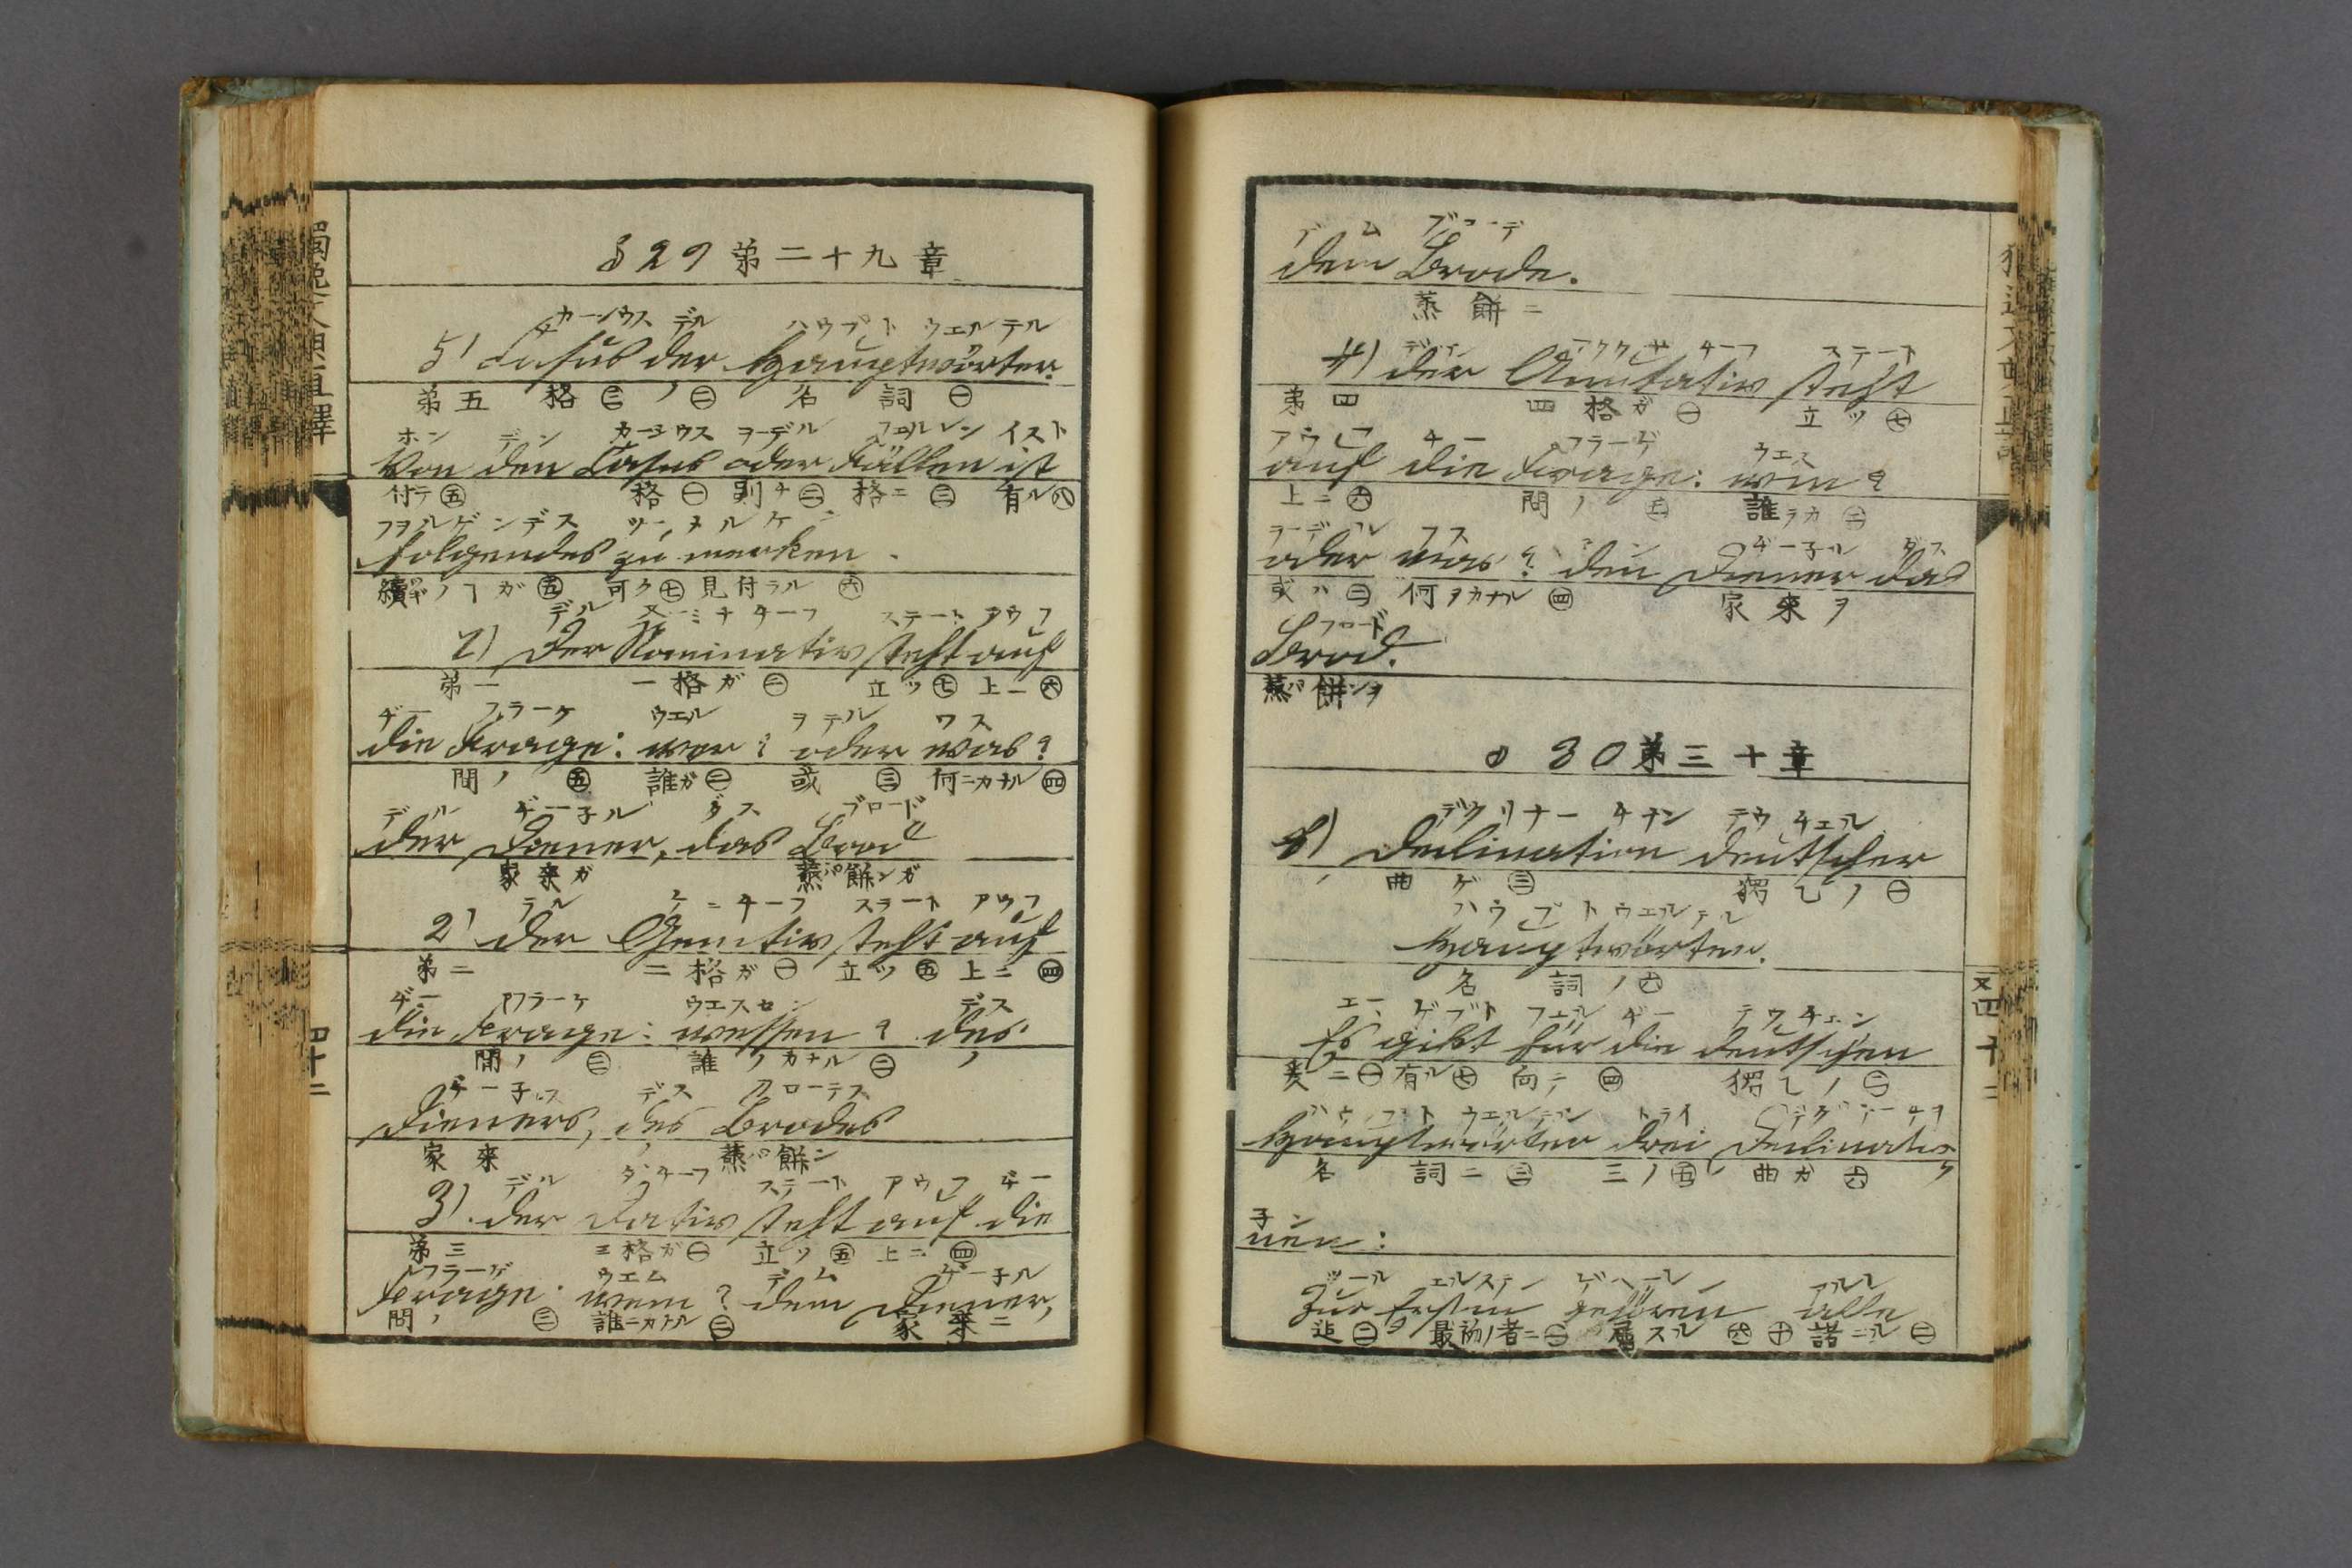 §29 第二十九章
カーシウス デル ハウプト ウェルテル
5) Casus der Hauptwörter.
第五 格㊂ノ㊁ 名詞㊀
ホン デン カーシウス ヲーデル フェルレン イスト
Von den Casus oder Fällen ist
付テ㊄ 格㊀ 則チ㊁ 格ニ㊂ 有ル㊇
フヲルゲンデス ツー メルケン
folgendes zu merken.
可ク㊆ 見付ラル㊅
デル ノーミナチーフ ステート アウフ
1) Der Nominativ steht auf
第一 一格ガ㊁ 立ツ㊆ 上ニ㊅
ヂー フラーケ ウエル ヲデル ワス
die Frage: wer? oder was?
問ノ㊄ 誰ガ㊁ 或㊂ 何ニカナル㊃
デル ヂー子ル ダス ブロード
der Diener, das Brod
家来ガ 蒸餅ガ
デル ゲニチーフ ステート アウフ
2) der Genitiv steht auf
第二 二格ガ㊀ 立ツ㊄ 上ニ㊃
ヂー フラーケ ウエスセン デス
die Frage: wessen? des
問ノ㊂ 誰ノカナル㊁ ノ
ヂー子ルス デス ブローデス
Dieners, des Brodes
家来 ノ 蒸餅
デル ダチーフ ステート アウフ ヂー
3) der Dativ steht auf die
第三 三格ガ㊀ 立ツ㊄ 上ニ㊃
フラーゲ ウエム デム ヂー子ル
Frage: wem? dem Diener,
問ノ㊂ 誰ニカナル㊁ 家来ニ
四十二
デム ブローデ
dem Brode.
蒸餅ニ
アククサチーフ ステート
4) der Accusativ steht
第四 四格ガ㊀ 立ツ㊆
アウフ ヂー フラーゲ ウエン
auf die Frage: wen?
上ニ㊅ 問ノ㊄ 誰ヲカ㊁
ヲーデル ワス デン ヂー子ル ダス
oder was? den Diener das
或ハ㊂ 何ヲカナル㊃ 家来ヲ
ブロード
Brod.
蒸餅ヲ
§ 30 第三十章
デクリナーチヲン デウチェル
Declination deutscher
曲ゲ㊂ 獨乙ノ㊀
ハウプトウェルテル
Hauptwörter.
名詞ノ㊁
エス ゲブト フュル ヂー デウチェン
Es gibt für die deutschen
爰ニ㊀ 有ル㊆ 向テ㊃ 獨乙ノ㊁
ハウプト ウェルテル ドライ デクリナーチヲ
Hauptwörter drei Declinatio
名詞ニ㊂ 三ノ㊄ 曲ガ㊅
子ン
nen:
ツール エルステン ゲヘーレン アルレ
Zur Ersten gehören alle
最初ノ者ニ 属スル 諸
又四十二